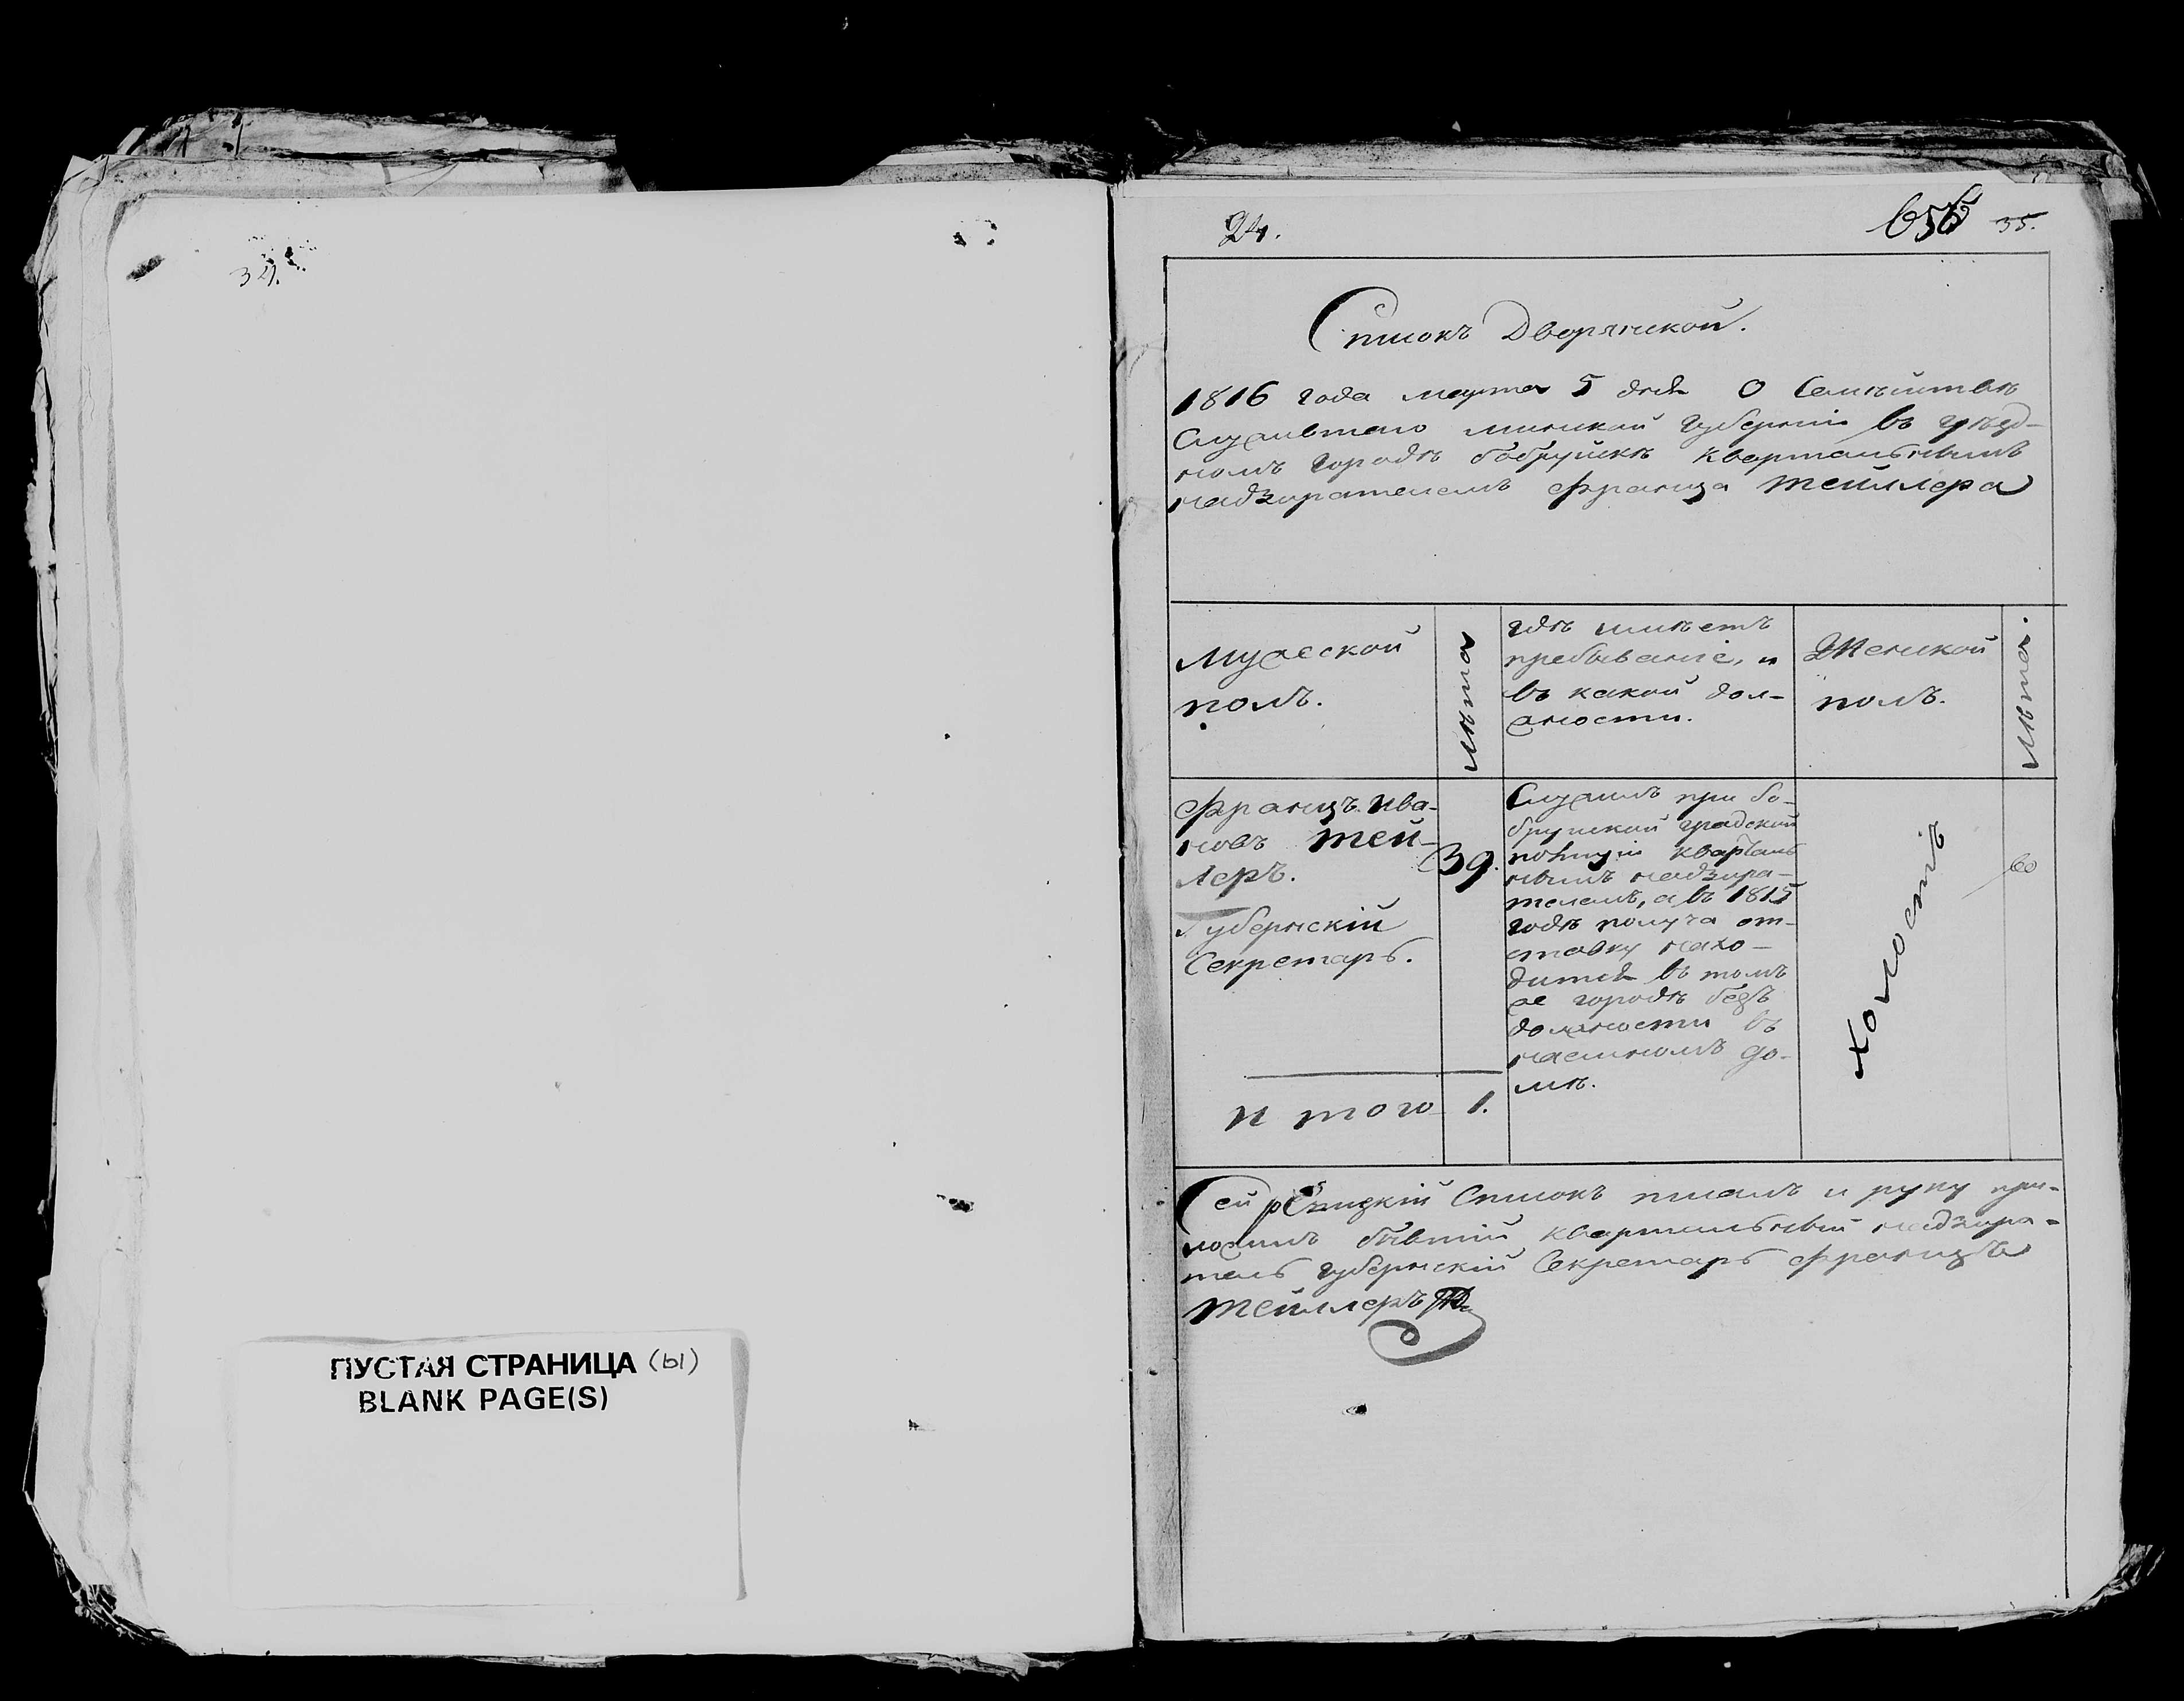 34.
ПУСТАЯ СТРАНИЦА (ы)
BLANK PAGE(S)
24.
656 35.
Списокъ Дворянской.
1816 года марта 5 дня О Семѣйствѣ
Служившаго минской губерніи въ уѣзд-
номъ городѣ бобруйскѣ квартальнымъ
надзирателемъ Франца Тейллера
Мужеской
полъ.
лѣта
гдѣ имѣетъ
пребываніе, и
въ какой дол-
жности.
Женской
полъ.
лѣта.
Францъ Ива-
новъ Тей-
леръ.
Губернскій
Секретарь.
39.
Служилъ при бо-
бруйской градской
полиціи кварталь
нымъ надзира-
телемъ, а въ 1815
годѣ получа от-
ставку нахо-
дится въ томъ
же городѣ безъ
должности въ
наемномъ до-
мѣ.
холостъ
И того 1.
Сей Списокъ писалъ и руку при-
ложилъ бывшій квартальный надзира-
тель губернскій Секретарь Францъ
Тейллеръ